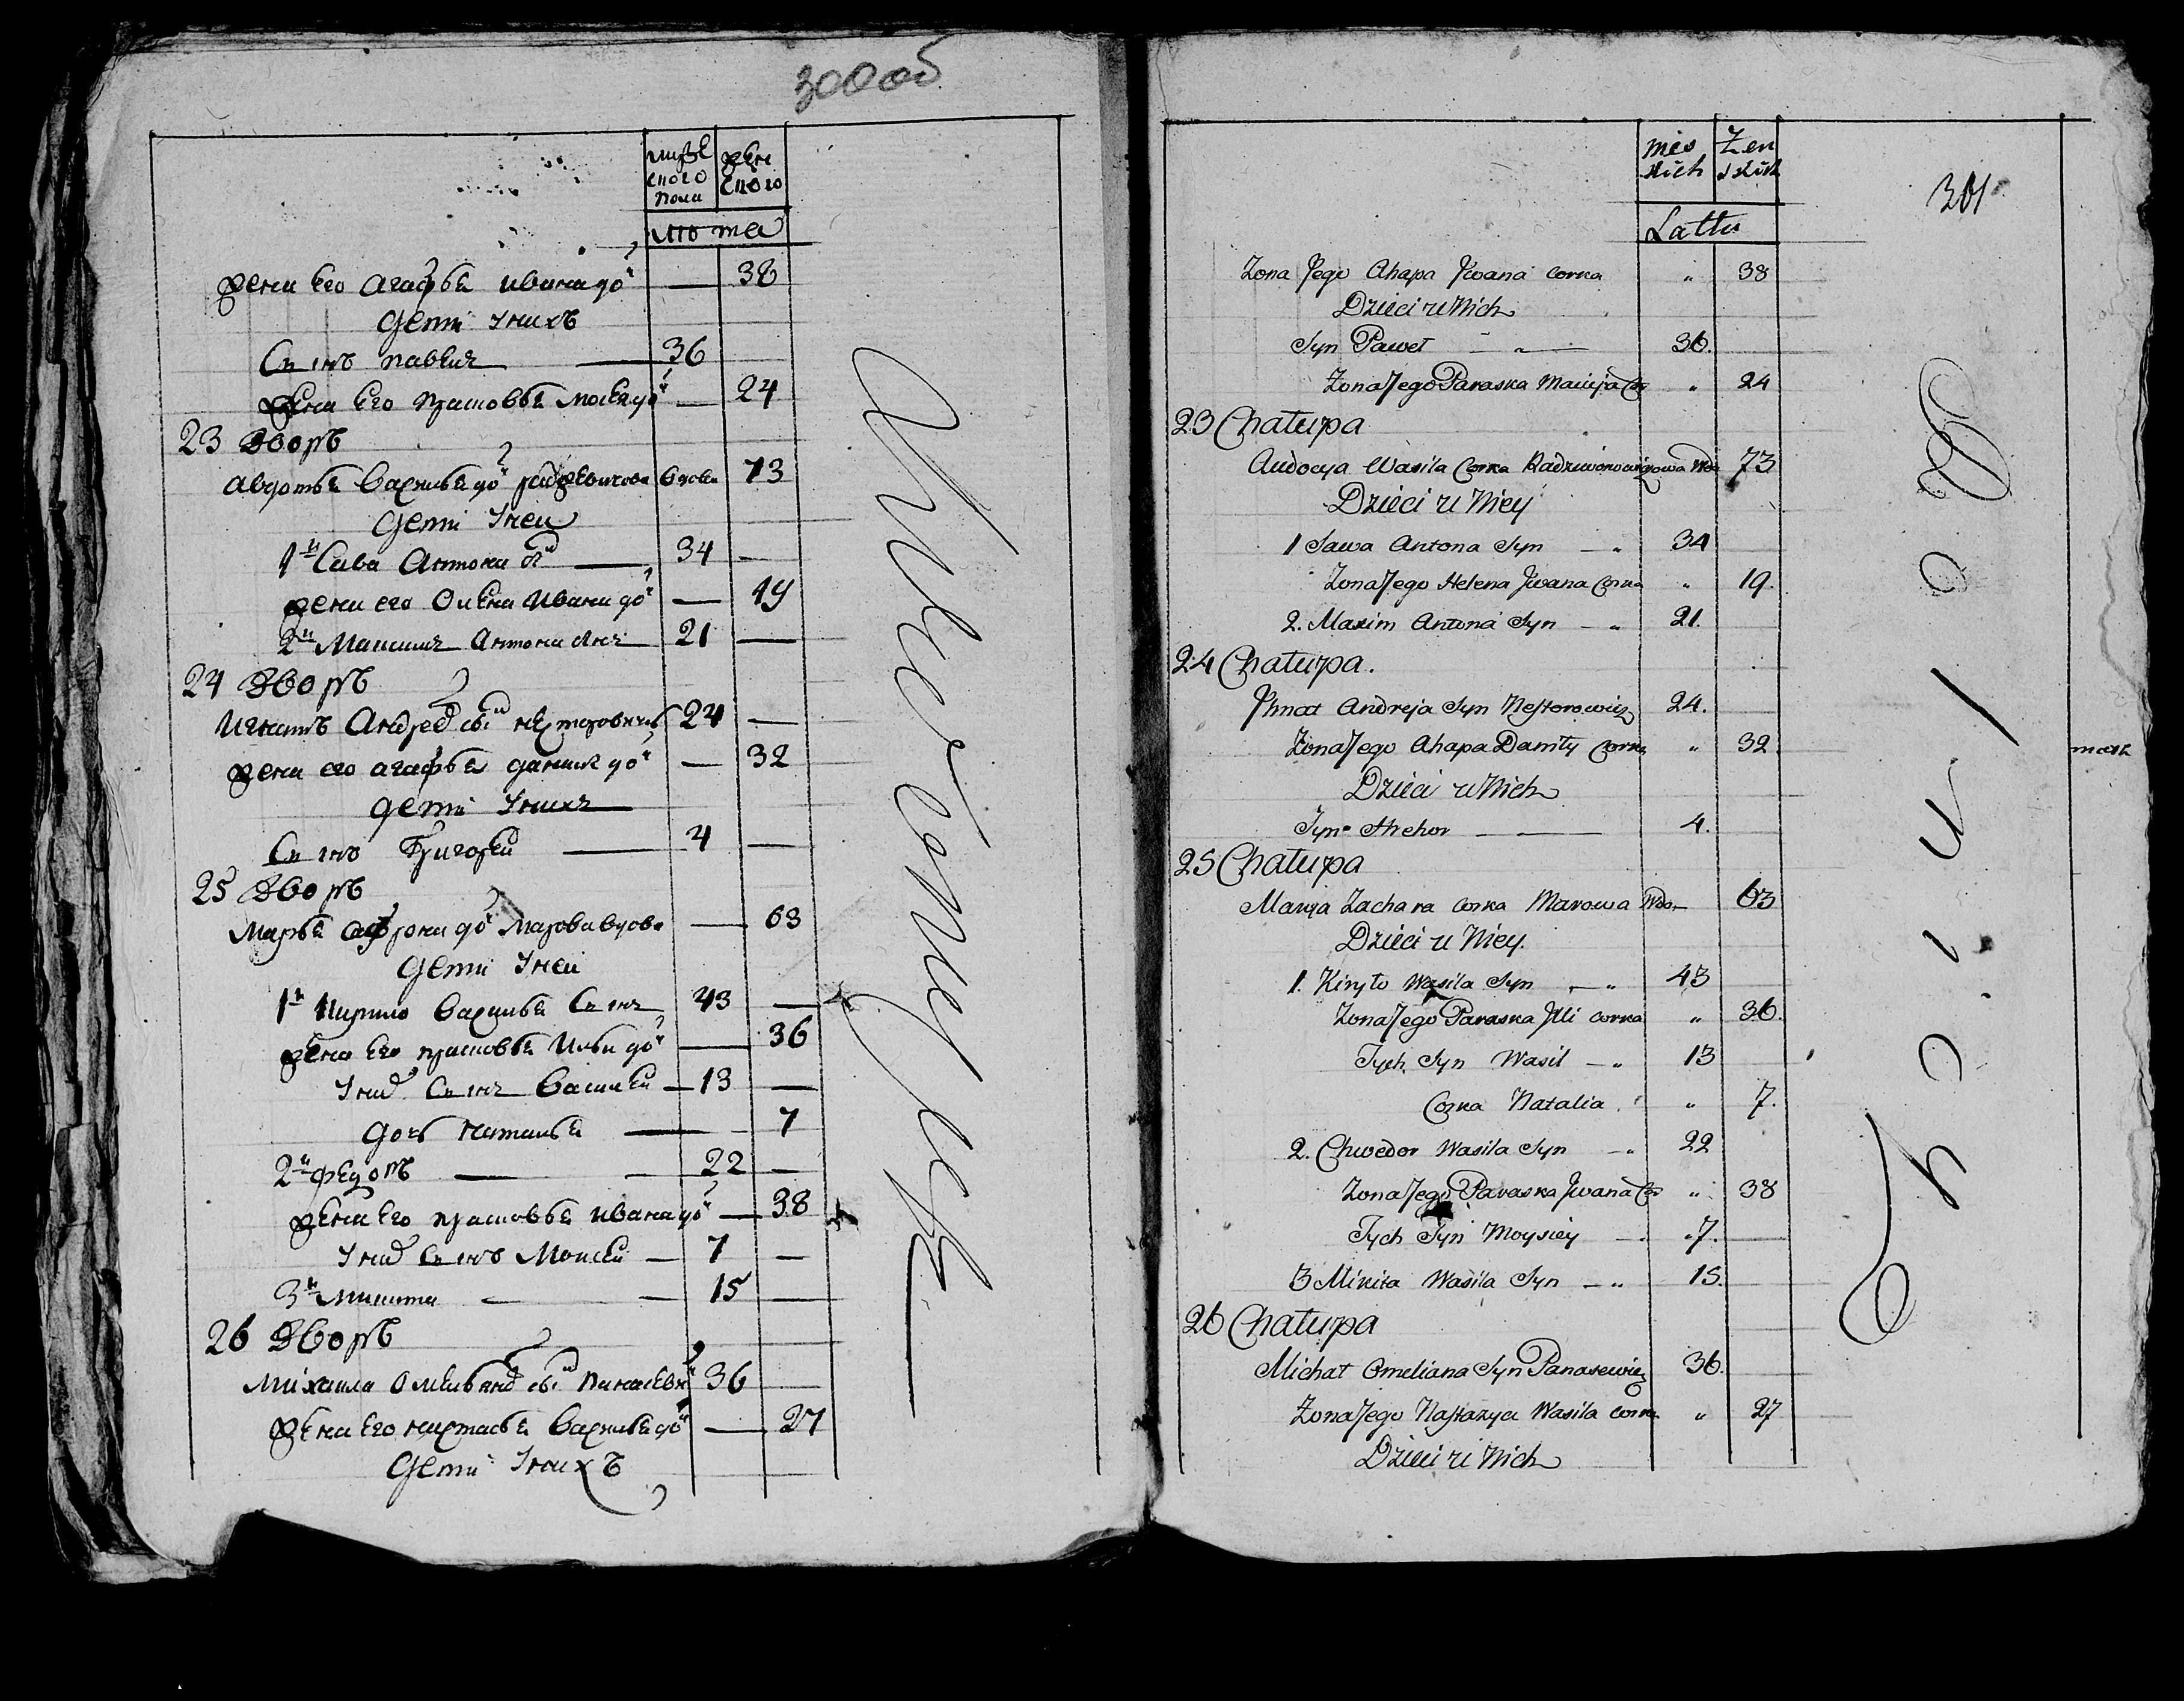 300 об
муже
ского
пола
жен
ского
лета
жена его агафья ивана до 38
дети у них
Сынъ павелъ 36
жена его прасковья 24
23 Дворъ
авдотья василья до вдова 73
дети у неи
1й Сава Антона 34
жена его Олена Ивана до 19
2й Максимъ Антона 21
24 Дворъ
Игнатъ Андрея 24
жена его агафья данила до 32
дети у нихъ
Сынъ Григореи 4
25 Дворъ
Марья до Марова вдова 63
дети у неи
1й Кирило василья Сынъ 43
жена его прасковья Ильи до 36
У них Сынъ Василеи 13
дочь наталья 7
2й федоръ 22
жена его прасковья ивана до 38
У них Сынъ Моисеи 7
3й микита 15
26 Дворъ
Михаила 36
жена его настасья василья до 27
дети у нихъ
301
męs
kich
Zen
skich
Latta
Zona Jego Ahapa Jwana Corka " 38
Dzieci u Nich
Syn Paweł 36.
Zona Jego Paraska Macieja Cor " 24
23 Chałupa
Audocya Wasila Corka Wdo 73
Dzieci u Niey
1 Sawa Antona Syn 34
Zona Jego Helena Jwana Corka " 19.
2. Maxim Antona Syn 21.
24 Chałupa.
Jhnat Andreja Syn Nestorowicz 24.
Zona Jego Ahapa Daniły Corka " 32.
Dzieci u Nich
Syn Hrehor 4.
25 Chałupa
Marya Zachara Corka Marowa Wdo 63
Dzieci u Niey.
1. Kiryło Wasila Syn 43
Zona Jego Paraska Jlli Corka " 36.
Tych Syn Wasil 13
Corka Natalia " 7.
2. Chwedor Wasila Syn 22
Zona Jego Paraska Jwana Cor " 38
Tych Syn Moysiey 7.
3 Mikita Wasila Syn 15.
26 Chałupa
Michał Omeliana Syn Panasewicz 36.
Zona Jego Nastazya Wasila Corka " 27
Dzieci u Nich